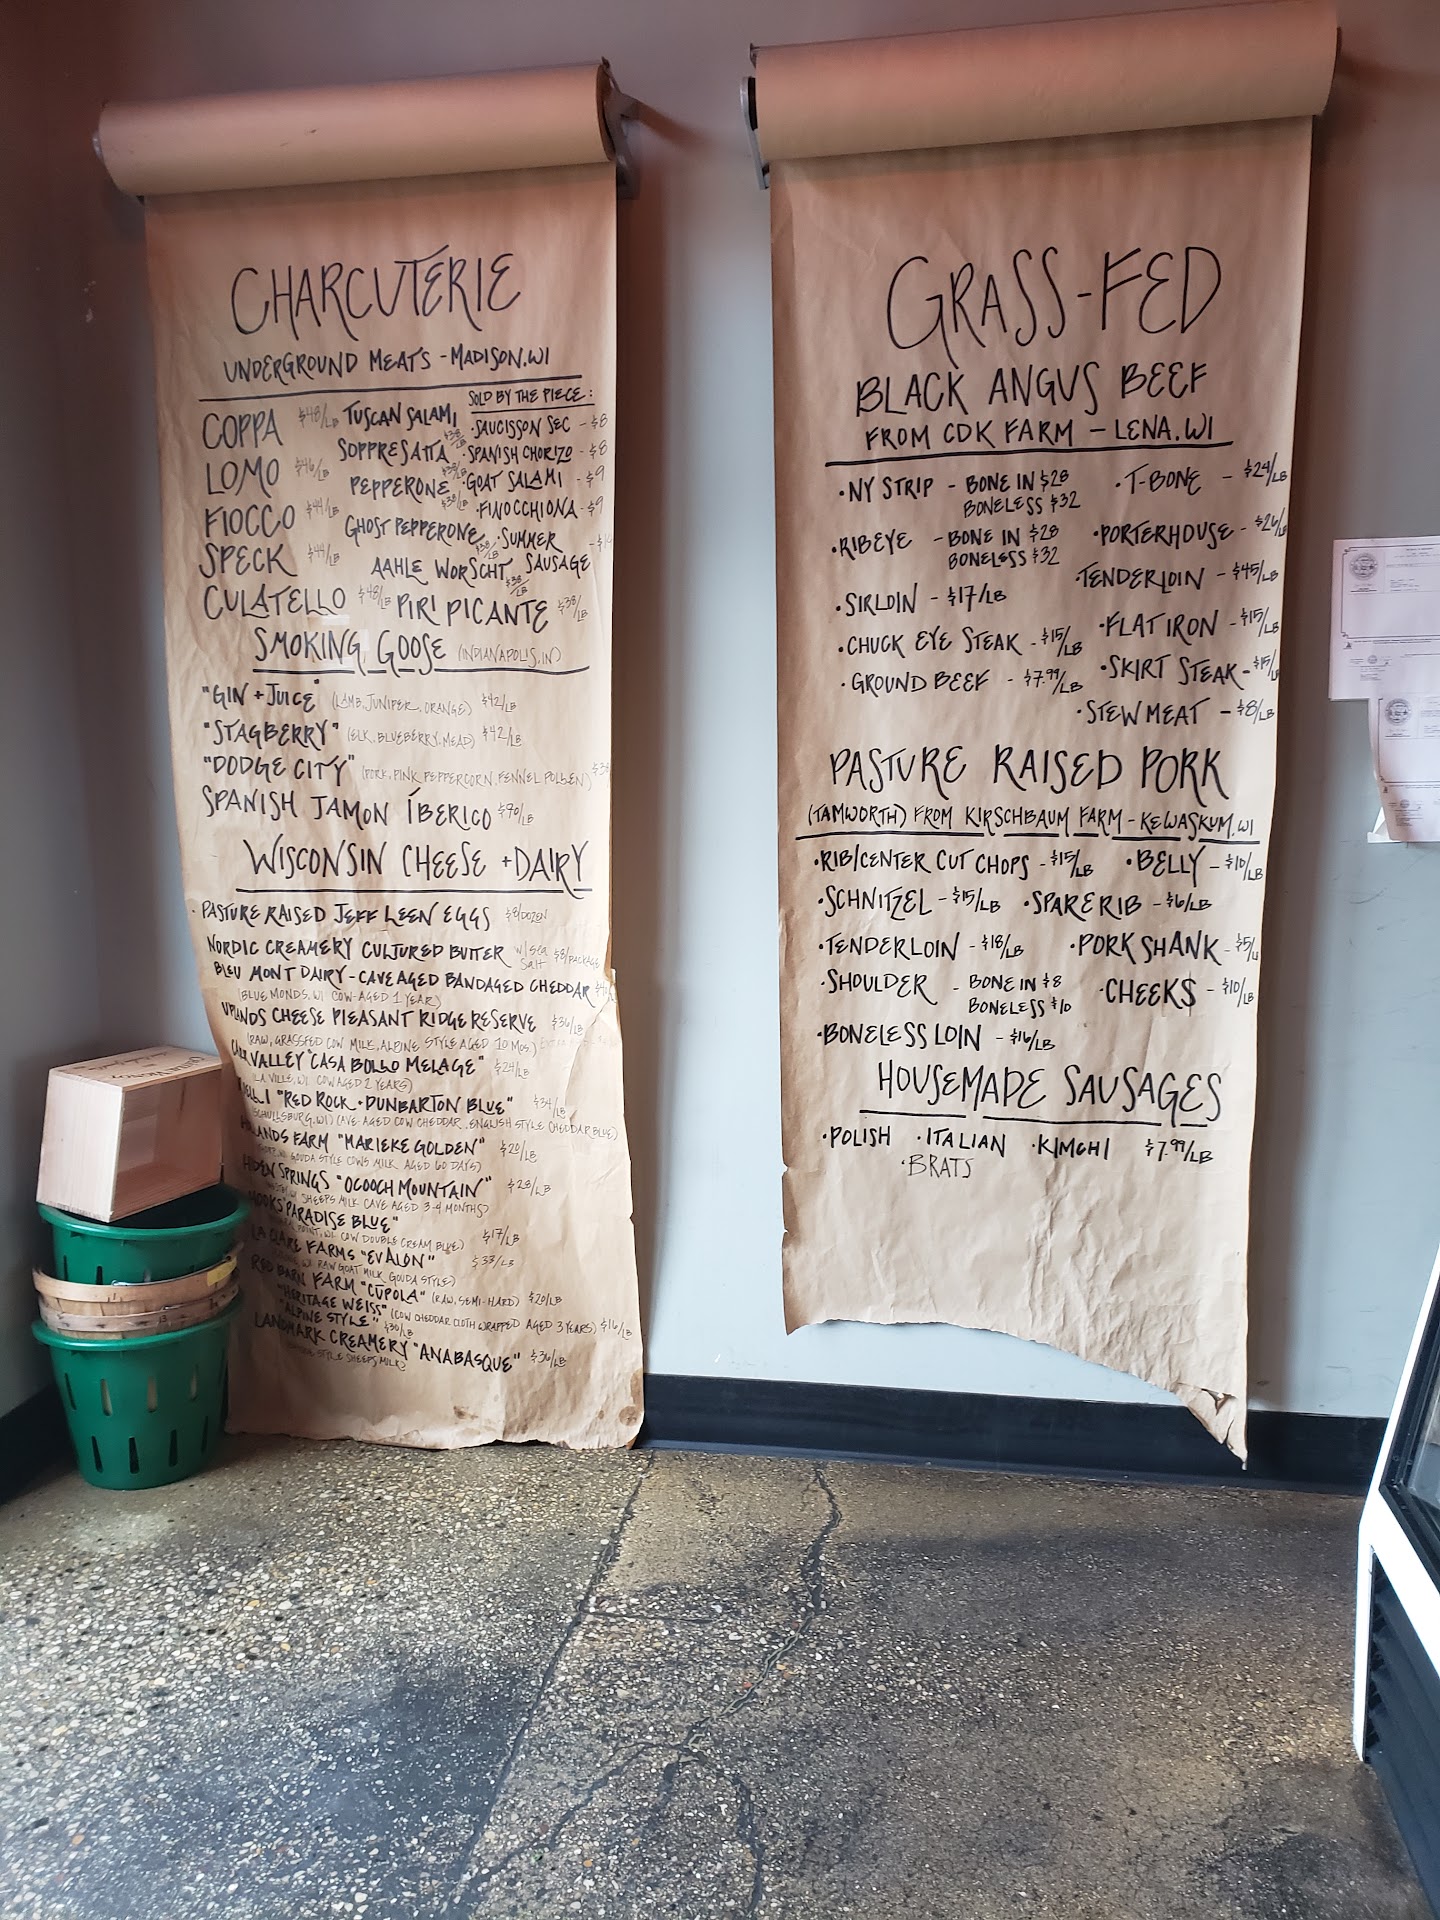 CHARCUTERIE
UNDERGROUND MEATS - MADISON, WI
SOLD BY THE PIECE:
COPPA $48/LB TUSCAN SALAMI $38/LB ·SAUCISSON SEC - $8
LOMO $46/LB SOPPRESATTA $38/LB ·SPANISH CHORIZO - $8
PEPPERONE $38/LB ·GOAT SALAMI - $9
FIOCCO $44/LB GHOST PEPPERONE $38/LB ·FINOCCHIONA - $9
SPECK $44/LB AAHLE WORSCHT $38/LB ·SUMMER SAUSAGE
CULATELLO $48/LB PIRI PICANTE $38/LB
SMOKING GOOSE (INDIANAPOLIS, IN)
"GIN + JUICE" (LAMB, JUNIPER, ORANGE) $42/LB
"STAGBERRY" (ELK, BLUEBERRY, MEAD) $42/LB
"DODGE CITY" (PORK, PINK PEPPERCORN, FENNEL POLLEN)
SPANISH JAMON ÍBERICO $90/LB
WISCONSIN CHEESE + DAIRY
·PASTURE RAISED JEFF LEEN EGGS $8/DOZEN
NORDIC CREAMERY CULTURED BUTTER w/ Sea Salt $8/PACKAGE
BLEU MONT DAIRY - CAVE AGED BANDAGED CHEDDAR
(BLUE MONDS, WI COW-AGED 1 YEAR)
UPLANDS CHEESE PLEASANT RIDGE RESERVE $36/LB
(RAW, GRASSFED COW MILK, ALPINE STYLE AGED 10 MOS.)
VALLEY "CASA BOLLO MELAGE" $24/LB
(LA VILLE, WI COW AGED 2 YEARS)
"RED ROCK · DUNBARTON BLUE" $34/LB
SCHULLSBURG, WI) CAVE AGED COW CHEDDAR, ENGLISH STYLE CHEDDAR BLUE)
FARM "MARIEKE GOLDEN" $20/LB
GOUDA STYLE COWS MILK AGED 60 DAYS)
SPRINGS "OCOOCH MOUNTAIN" $28/LB
SHEEPS MILK CAVE AGED 3-4 MONTHS)
HOOKS "PARADISE BLUE"
POINT, WI COW DOUBLE CREAM BLUE) $17/LB
LA CLARE FARMS "EVALON" $33/LB
WI RAW GOAT MILK GOUDA STYLE)
RED BARN FARM "CUPOLA" (RAW, SEMI-HARD) $20/LB
"HERITAGE WEISS" (COW CHEDDAR CLOTH WRAPPED AGED 3 YEARS) $16/LB
"ALPINE STYLE" $30/LB
LANDMARK CREAMERY "ANABASQUE" $36/LB
STYLE SHEEPS MILK)
GRASS-FED
BLACK ANGUS BEEF
FROM CDK FARM - LENA, WI
·NY STRIP - BONE IN $28 ·T-BONE - $24/LB
BONELESS $32
·RIBEYE - BONE IN $28 ·PORTERHOUSE - $26/LB
BONELESS $32
·TENDERLOIN - $45/LB
·SIRLOIN - $17/LB
·FLAT IRON - $15/LB
·CHUCK EYE STEAK - $15/LB
·SKIRT STEAK - $15/LB
·GROUND BEEF - $7.99/LB
·STEW MEAT - $8/LB
PASTURE RAISED PORK
(TAMWORTH) FROM KIRSCHBAUM FARM - KEWASKUM, WI
·RIB/CENTER CUT CHOPS - $15/LB ·BELLY - $10/LB
·SCHNITZEL - $15/LB ·SPARE RIB - $6/LB
·TENDERLOIN - $18/LB ·PORK SHANK - $5/L
·SHOULDER - BONE IN $8 ·CHEEKS - $10/LB
BONELESS $10
·BONELESS LOIN - $16/LB
HOUSEMADE SAUSAGES
·POLISH ·ITALIAN ·KIMCHI $7.99/LB
·BRATS